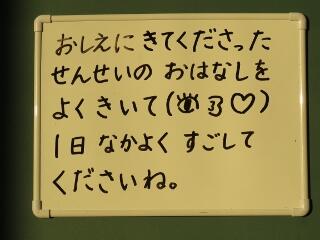 おしえに きてくださった
せんせいの おはなしを
よく きいて(👁👂♡)
1日 なかよく すごして
くださいね。